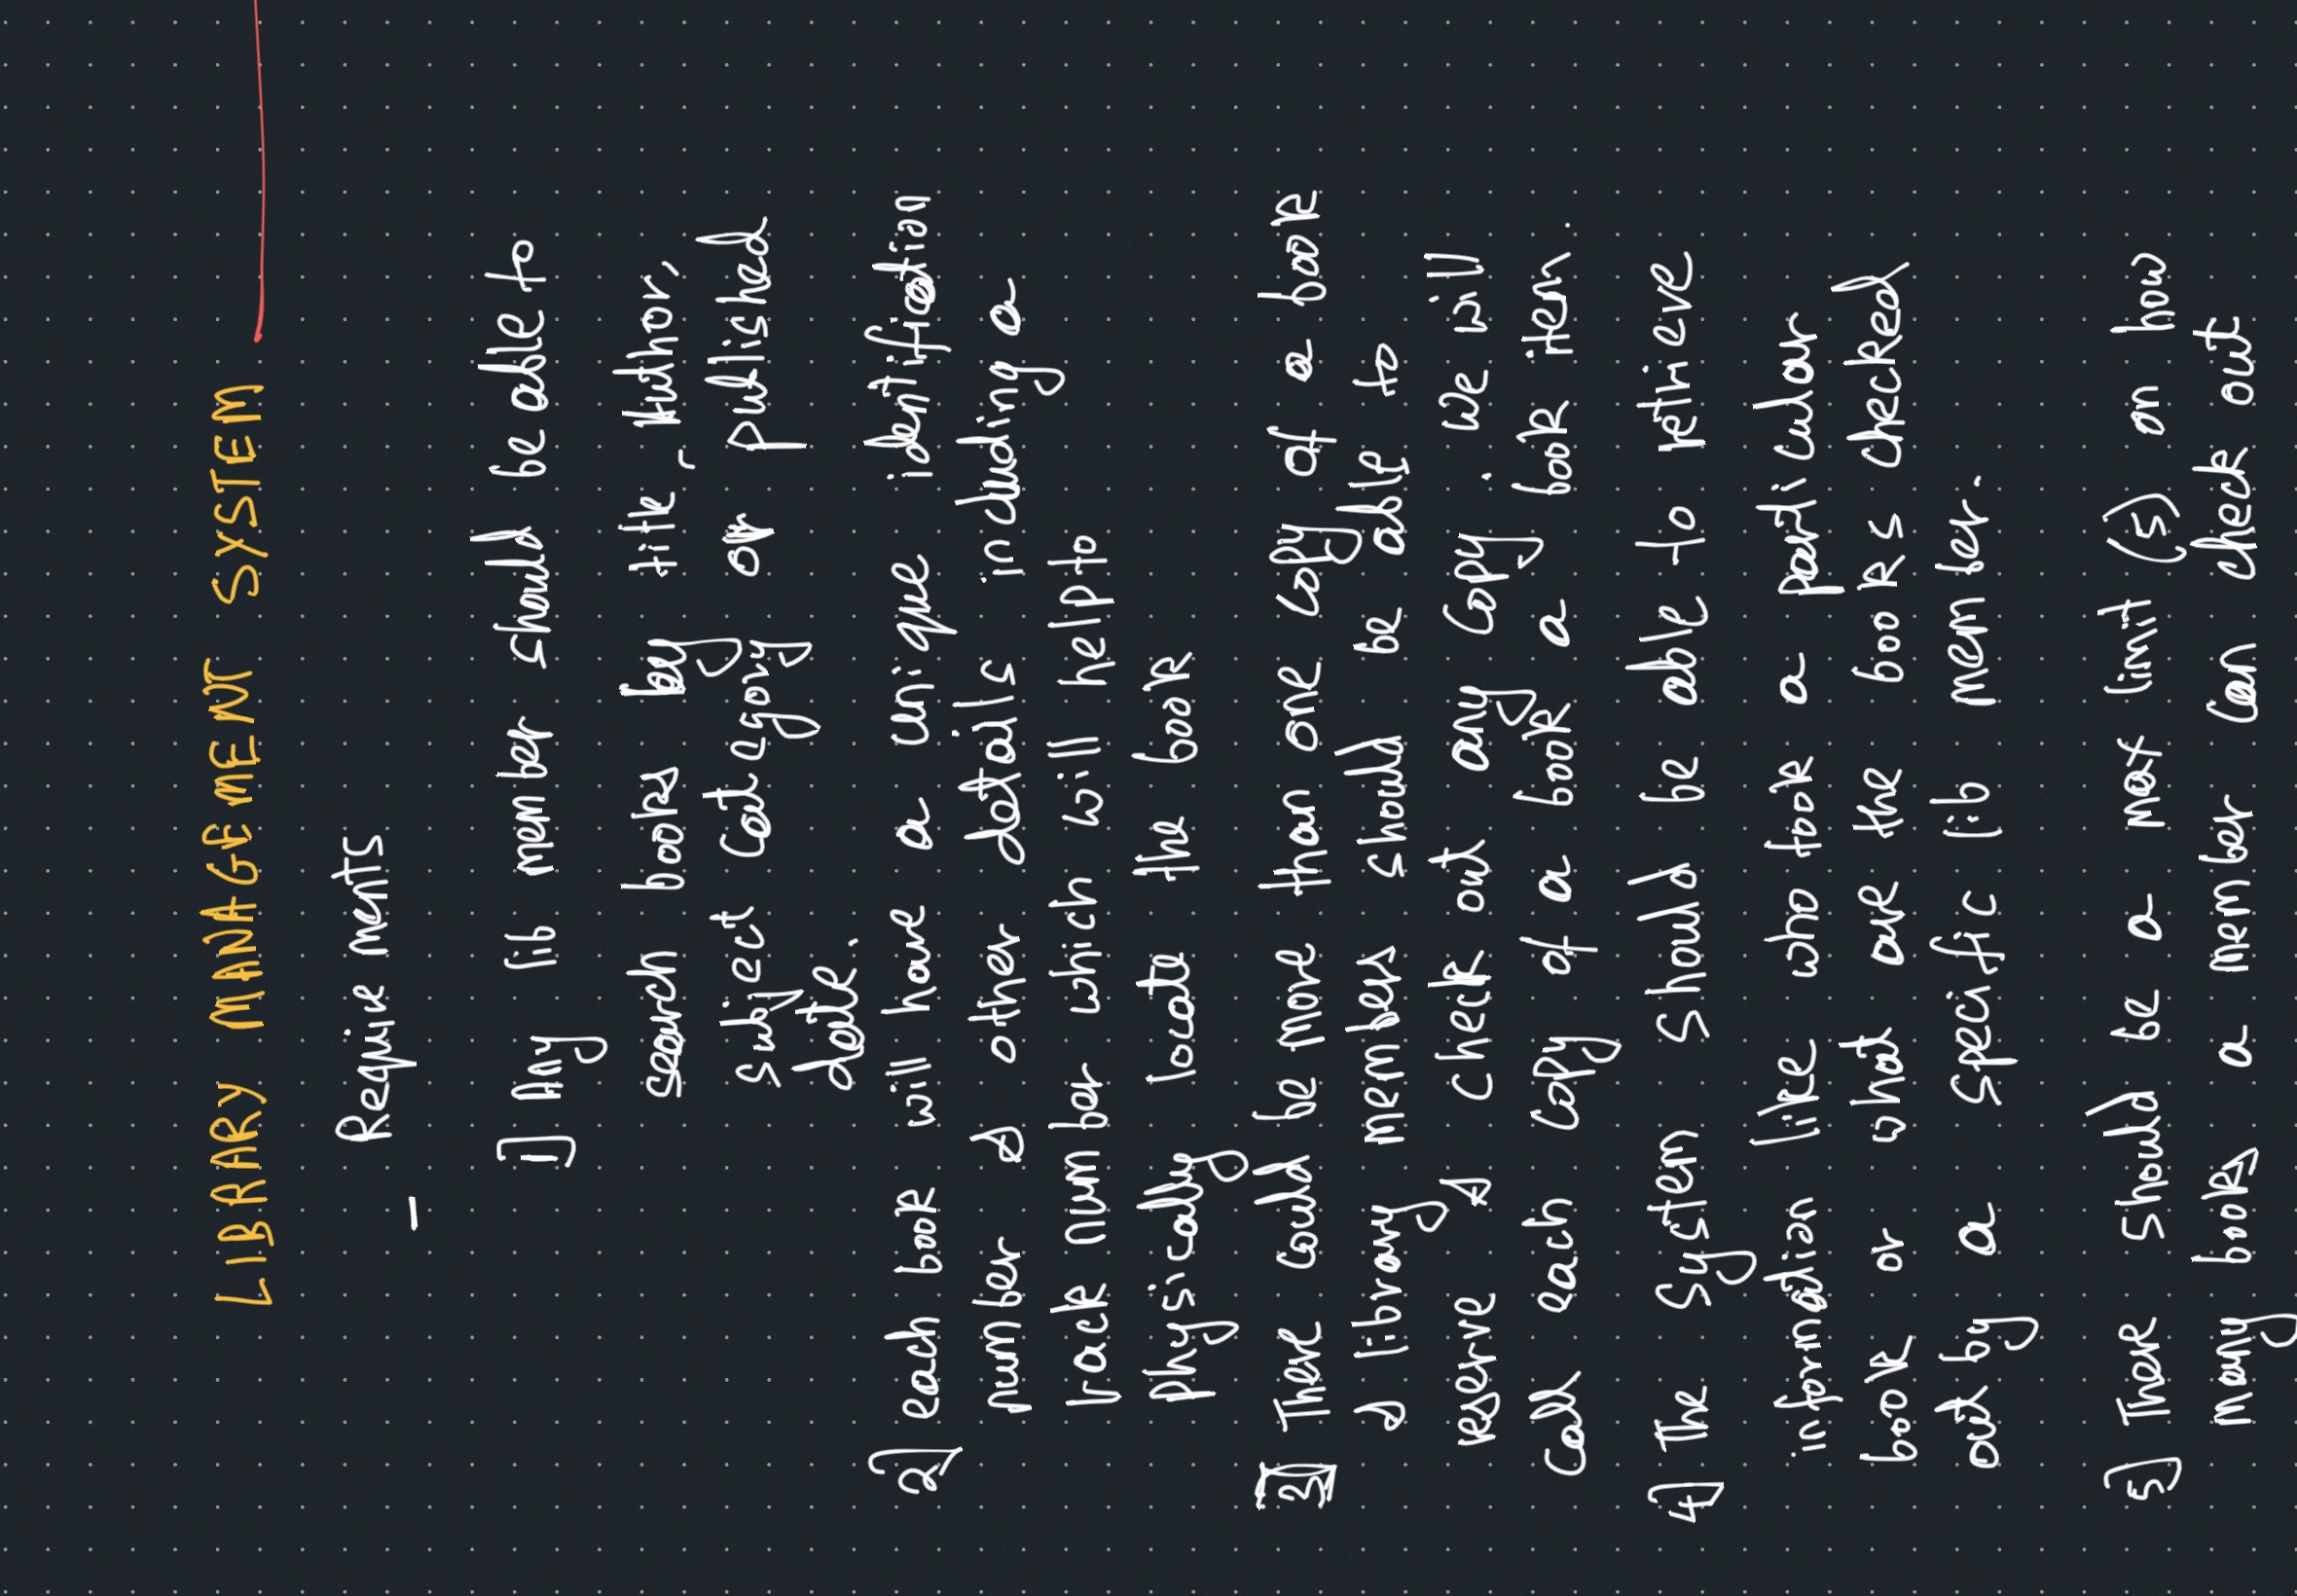 LIBRARY MANAGEMENT SYSTEM
- Requirements
1] Any lib member should be able to
search books by title, Author,
subject category or published
date.
2] each book will have a unique identification
number & other details including a
rack number which will help to
physically locate the book
3] There could be more than one copy of a book
& library members should be able to
reserve & check out any copy. We will
call each copy of a book a book item.
4] The system should be able to retrieve
information like who took a particular
book or what are the books checked
out by a specific lib member.
5] There should be a max limit (5) on how
many books a member can check out